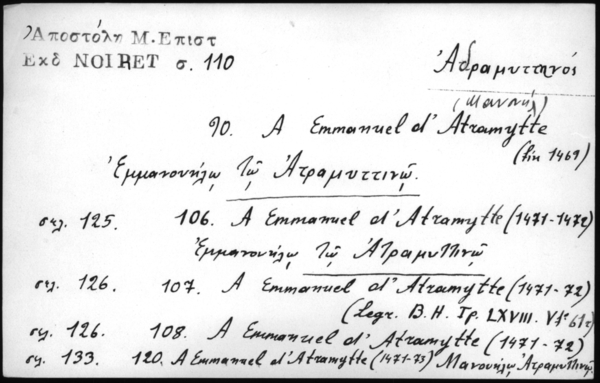 Ἀποστόλη Μ. Επιστ
Εκδ NOIRET σ. 110
Ἀδραμυττηνός
(Μανουήλ)
90. A Emmanuel d'Atramytte
(fin 1469)
Ἐμμανουήλῳ τῷ Ἀτραμυττινῷ.
σελ. 125. 106. A Emmanuel d'Atramytte (1471-1472)
Ἐμμανουήλῳ τῷ Ἀτραμυττινῷ
σελ. 126. 107. A Emmanuel d'Atramytte (1471-72)
(Legr. B. H. Τρ. LXVIII.
σελ. 126. 108. A Emmanuel d'Atramytte (1471-72)
σελ. 133. 120. A Emmanuel d'Atramytte (1471-73) Μανουήλῳ Ἀτραμυττινῷ